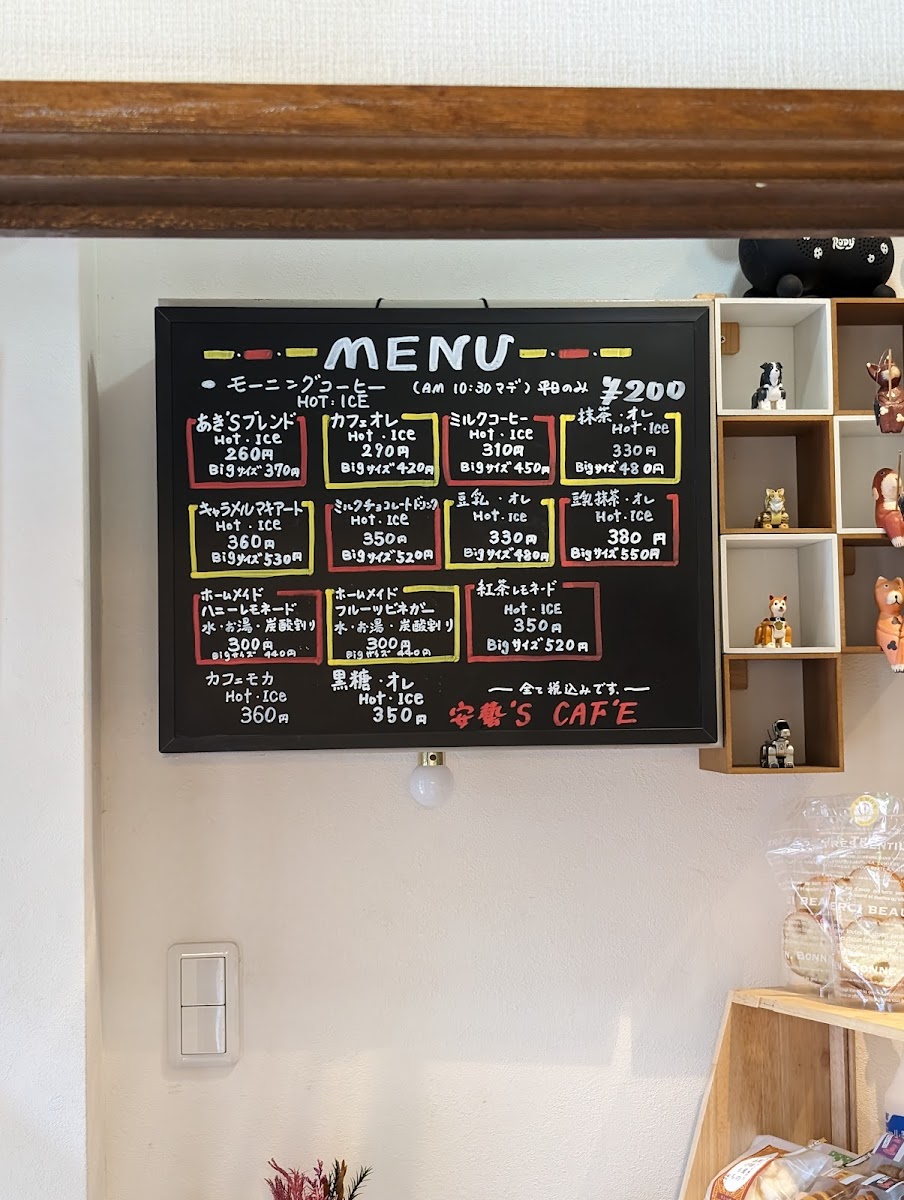 Rody
MENU
モーニングコーヒー (AM 10:30マデ) 平日のみ ¥200
HOT・ICE
あき'Sブレンド
Hot・ICE
260円
Bigサイズ370円
カフェオレ
Hot・ICE
290円
Bigサイズ420円
ミルクコーヒー
Hot・ICE
310円
Bigサイズ450円
抹茶・オレ
Hot・ICE
330円
Bigサイズ480円
キャラメルマキアート
Hot・ICE
360円
Bigサイズ530円
ミルクチョコレートドリンク
Hot・ICE
350円
Bigサイズ520円
豆乳・オレ
Hot・ICE
330円
Bigサイズ480円
豆乳抹茶・オレ
Hot・ICE
380円
Bigサイズ550円
ホームメイド
ハニーレモネード
水・お湯・炭酸割り
300円
Bigサイズ440円
ホームメイド
フルーツビネガー
水・お湯・炭酸割り
300円
Bigサイズ440円
紅茶レモネード
Hot・ICE
350円
Bigサイズ520円
カフェモカ
Hot・ICE
360円
黒糖・オレ
Hot・ICE
350円
全て税込みです。
安藝'S CAF'E